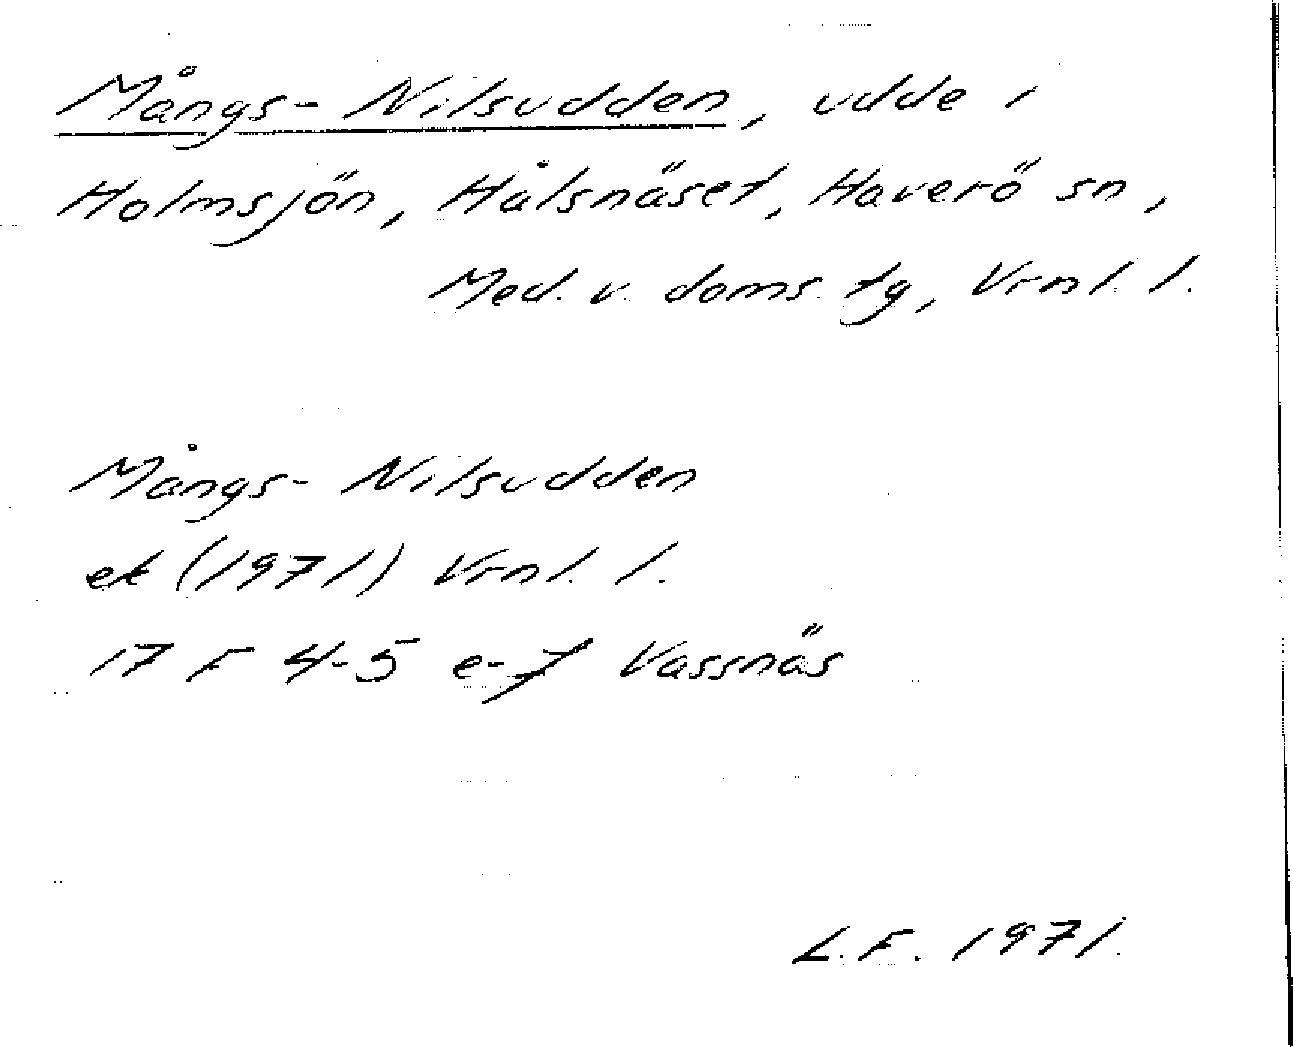 Mångs-Nilsudden, udde i
Holmsjön, Hålsnäset, Haverö sn,
Med. v. doms. tg, Vrnl. l.
Mångs-Nilsudden
ek (1971) Vrnl. l.
17 F 4-5 e-f Vassnäs
L.F. 1971.